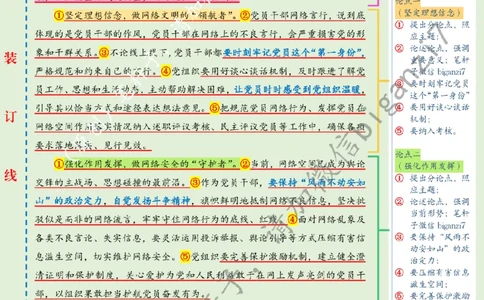 ①坚定理想信念，做网络文明的“领航者”。②党员干部网络言行，说到底
体现的是党员干部的作风，党员干部在网络上的不良言行，会严重损害党的形
象和干群关系。③不论线上线下，党员干部都要时刻牢记党员这个“第一身份”，
严格规范和约束自己的言行。④党组织要用好谈心谈话机制，及时跟进了解党
员工作、思想和生活动态，主动帮助解决困难，让党员时时感受到党组织温暖，
引导其以恰当方式和途径表达想法意见。⑤把规范党员网络行为、发挥党员在
网络空间作用等实际情况纳入述职评议考核、民主评议党员等工作中，确保各项
要求落地落实、见行见效。
①强化作用发挥，做网络安全的“守护者”。②当前，网络空间已成为舆论
交锋的主战场、思想碰撞的最前沿。③作为党员干部，要保持“风雨不动安如
山”的政治定力，自觉发扬斗争精神，旗帜鲜明地抵制网络不良信息，坚决批
驳似是而非的网络流言，牢牢守住网络行为的底线、红线。④面对网络乱象及
各类不良言论、失实信息，要灵活运用投诉举报、舆论引导等方式压缩有害信
息滋生空间，切实维护网络安全。⑤党组织要完善保护激励机制，建立健全澄
清证明和保护制度，关心爱护为党和人民利益敢于在网上发声亮剑的党员干
部，以组织果敢担当护航党员奋发有为。
装
订
线
论点一
（坚定理想信念）
① 提出分论点、照
应主题；
② 论述论点，强调
重要意义；笔杆
子微信 biganzi7
③ 要时刻牢记党员
这个“第一身份”
④ 要用好谈心谈话
机制；
⑤ 要纳入考核。
论点二
（强化作用发挥）
① 提出分论点、照
应主题；
② 论述论点，强调
当前形势；笔杆
子微信 biganzi7
③ 要保持“风雨不
动安如山”的政
治定力；
④ 要压缩有害信息
滋生空间；
⑤ 要完善保护激励